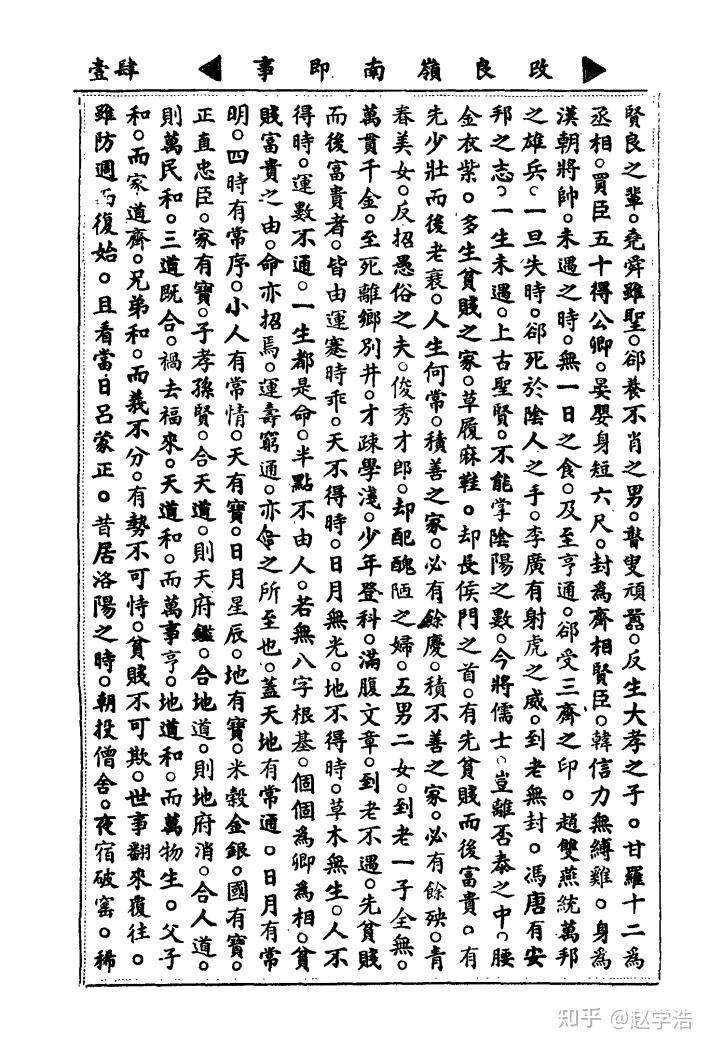 改良嶺南即事
肆壹
賢良之輩。堯舜雖聖。卻養不肖之男。瞽叟頑嚚。反生大孝之子。甘羅十二為
丞相。買臣五十得公卿。晏嬰身短六尺。封為齊相賢臣。韓信力無縛雞。身為
漢朝將帥。未遇之時。無一日之食。及至亨通。卻受三齊之印。趙雙燕統萬邦
之雄兵。一旦失時。卻死於陰人之手。李廣有射虎之威。到老無封。馮唐有安
邦之志。一生未遇。上古聖賢。不能掌陰陽之數。今將儒士。豈離否泰之中。腰
金衣紫。多生貧賤之家。草履麻鞋。却長侯門之首。有先貧賤而後富貴。有
先少壯而後老衰。人生何常。積善之家。必有餘慶。積不善之家。必有餘殃。青
春美女。反招愚俗之夫。俊秀才郎。却配醜陋之婦。五男二女。到老一子全無。
萬貫千金。至死離鄉別井。才疎學淺。少年登科。滿腹文章。到老不遇。先貧賤
而後富貴者。皆由運蹇時乖。天不得時。日月無光。地不得時。草木無生。人不
得時。運數不通。一生都是命。半點不由人。若無八字根基。個個為卿為相。貧
賤富貴之由。命亦招焉。運壽窮通。亦之所至也。蓋天地有常通。日月有常
明。四時有常序。小人有常情。天有寶。日月星辰。地有寶。米穀金銀。國有寶。
正直忠臣。家有寶。子孝孫賢。合天道。則天府鑑。合地道。則地府消。合人道。
則萬民和。三道既合。禍去福來。天道和。而萬事亨。地道和。而萬物生。父子
和。而家道齊。兄弟和。而義不分。有勢不可恃。貧賤不可欺。世事翻來覆往。
雖防週而復始。且看當日呂蒙正。昔居洛陽之時。朝投僧舍。夜宿破窰。稀
知乎 @赵学浩